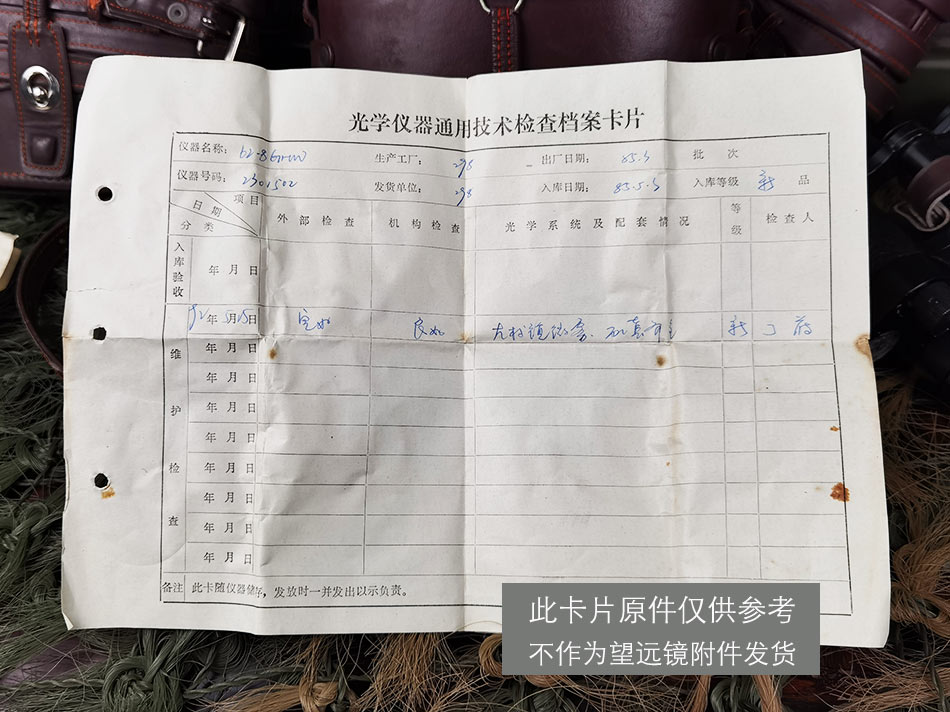 光学仪器通用技术检查档案卡片
仪器名称： 62-8 生产工厂： 298 出厂日期： 85.5 批次
仪器号码： 2301502 发货单位： 298 入库日期： 85.5.5 入库等级 新 品
项目
日期
分类
外部检查 机构检查 光学系统及配套情况 等级 检查人
入库验收 年 月 日
年 月 日 完好 良好 新
维护检查
年 月 日
年 月 日
年 月 日
年 月 日
年 月 日
年 月 日
年 月 日
年 月 日
备注 此卡随仪器储存，发放时一并发出以示负责。
此卡片原件仅供参考
不作为望远镜附件发货